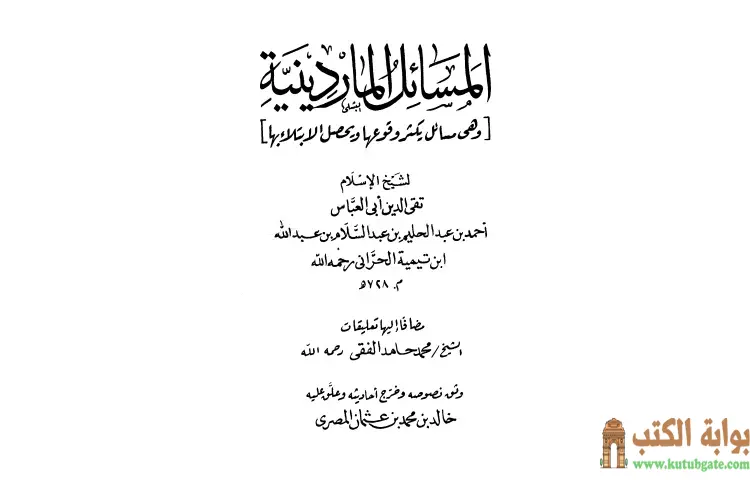 المَسَائِلُ المَاردِينيَّةِ
[وهى مسائل يكثر وقوعها ويحصل الابتلاء بها]
لشيخ الإسلام
تقى الدين أبى العبَّاس
أحمد بن عبد الحليم بن عبد السَّلام بن عبد الله
ابن تيمية الحرَّانى رحمه الله
م. ٧٢٨ هـ
مضافًا إليها تعليقات
الشيخ/ محمد حامد الفقى رحمه الله
وثق نصوصه وخرَّج أحاديثه وعلَّق عليه
خالد بن محمد بن عثمان المصرى
بوابة الكتب
www.kutubgate.com